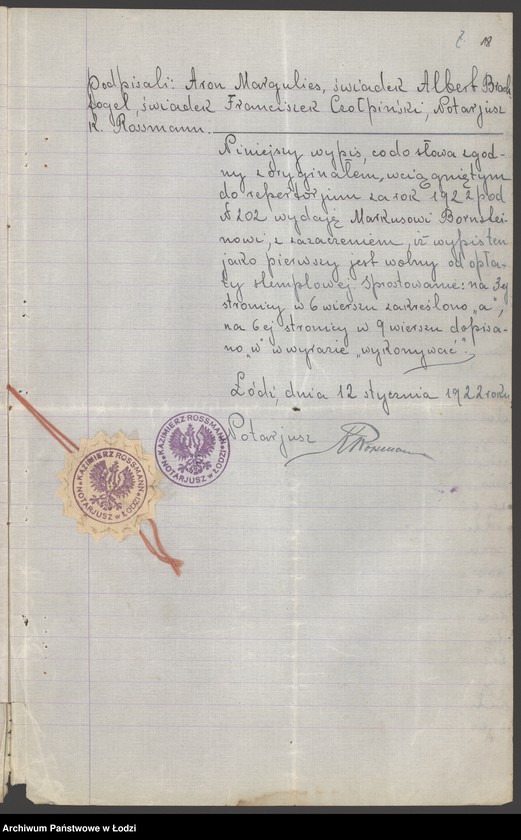 18
Podpisali: Aron Margulies, świadek Albert Brach-
fogel, świadek Franciszek Czołpiński, Notarjusz
K. Rossmann.
Niniejszy wypis, co do słowa zgod-
ny z oryginałem, wciągniętym
do repertorjum za rok 1922 pod
№ 202 wydaję Markusowi Bornstei-
nowi, z zaznaczeniem, iż wypis ten
jako pierwszy jest wolny od opła-
ty stemplowej. Sprostowanie: na 3ej
stronicy w 6 wierszu zakreślono „a”,
na 6ej stronicy w 9 wierszu dopisa-
no „w” w wyrazie „wykonywać”.
Łódź, dnia 12 stycznia 1922 roku
Notarjusz KRossmann
KAZIMIERZ ROSSMANN
NOTARJUSZ w ŁODZI
KAZIMIERZ ROSSMANN
NOTARJUSZ w ŁODZI
Archiwum Państwowe w Łodzi